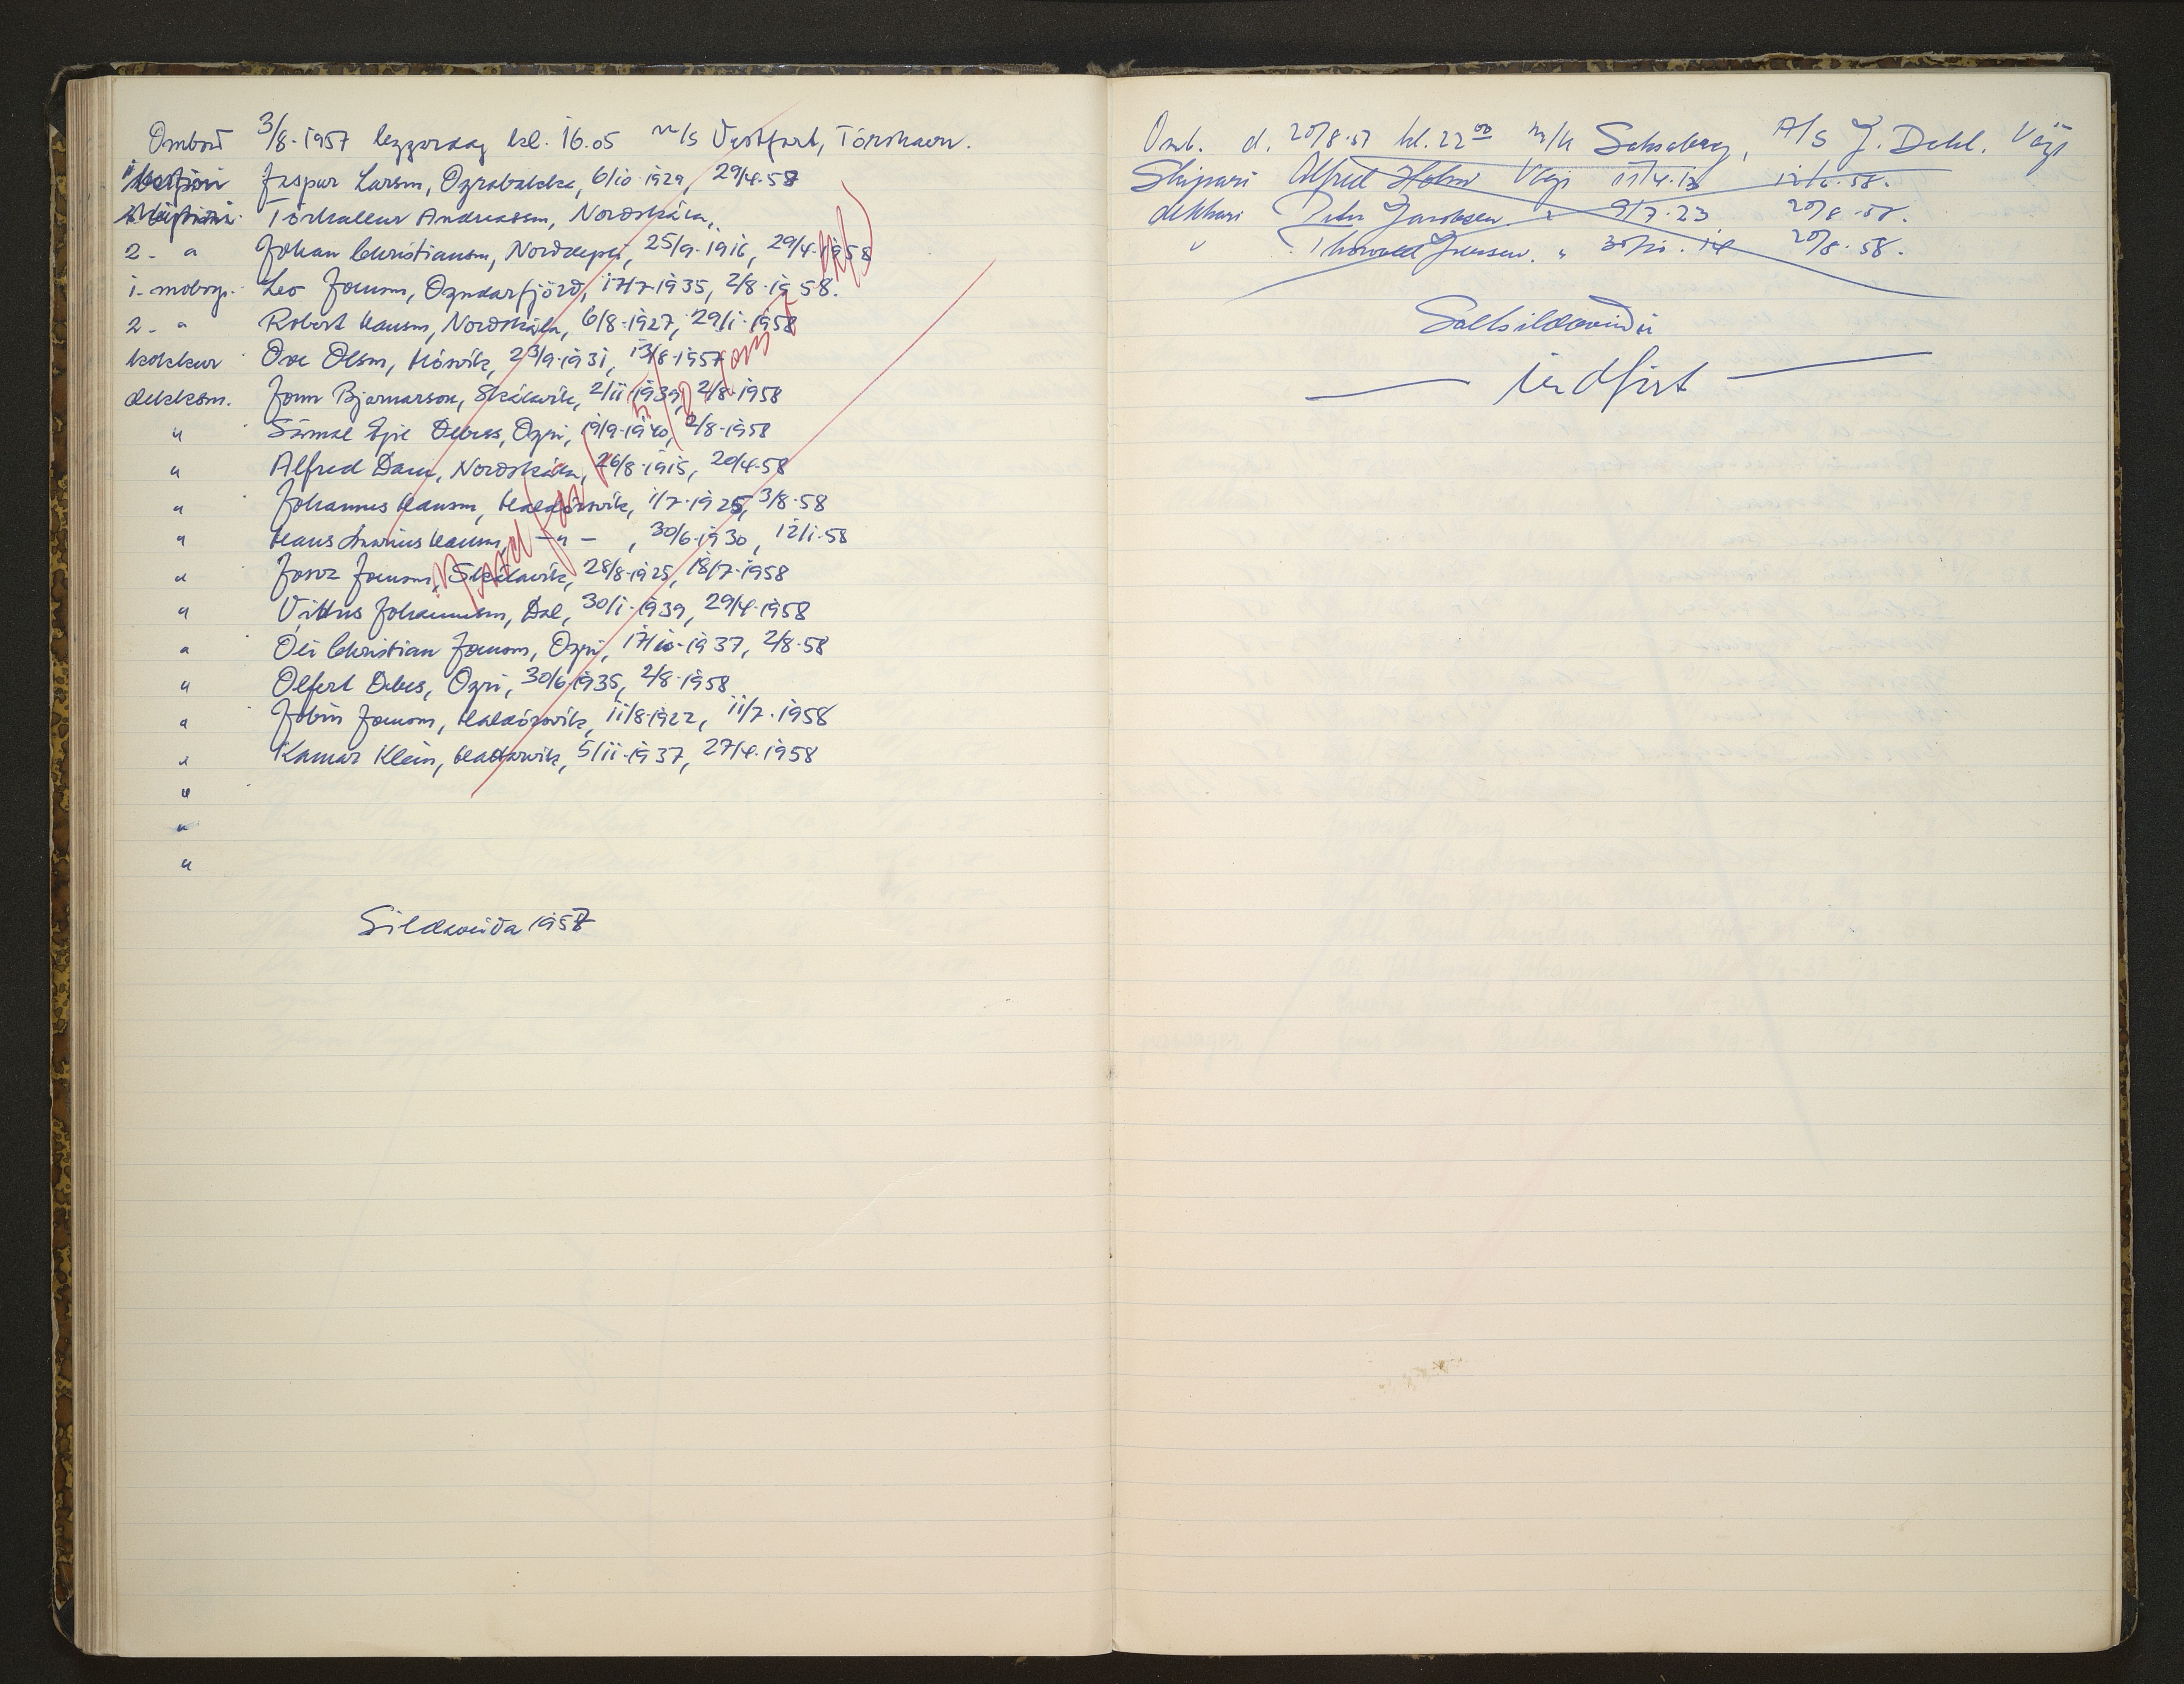 Ombord 3/8-1957 leygardag kl. 16.05 m/s Vestfart, Tórshavn.
Jaspur Larsen, Oyrabakka, 6/10-1929, 29/4-58
Tórhallur Andreasen, Norðskála,
2. " Johan Christiansen, Norðdepil, 25/9-1916, 29/4-1958
1. Leo Joensen, Oyndarfjörð, 17/7-1935, 2/8-1958.
2. " Robert Hansen, Norðskála, 6/8-1927, 29/1-1958
kokkur Ove Olsen, Hósvík, 23/9-1931, 13/8-1957
dekksm. Jonn Bjarnarson, Skálavík, 2/11-1939, 2/8-1958
" Debess, Oyri, 19/9-1940, 2/8-1958
" Alfred Dam, Norðskála, 26/8-1915, 20/4-58
" Johannus Hansen, Haldórsvík, 1/7-1925, 3/8-58
" Hans Hansen, -"- , 30/6-1930, 12/1-58
" Joensen, Skálavík, 28/8-1925, 18/7-1958
" Johannesen, Dal, 30/1-1939, 29/4-1958
" Óli Christian Joensen, Oyri, 17/10-1937, 2/8-58
" Olfert Debes, Oyri, 30/6-1935, 2/8-1958
" Jóbin Joensen, Haldórsvík, 11/8-1922, 11/7-1958
" Kamar Klein, Haldarsvík, 5/11-1937, 27/4-1958
"
"
"
Sildaveiða 1957
Omb. d. 20/8-57 kl. 22 00 m/k Saksaberg, A/S J. Dahl. Vági
Skipari Alfred Holm Vági 11/4-13 12/6-58.
dekkari Peter Jacobsen " 9/7-23 20/8-58.
" Thorvald Jensen. " 30/10-14 20/8-58.
Saltsildaveiði
indfirt